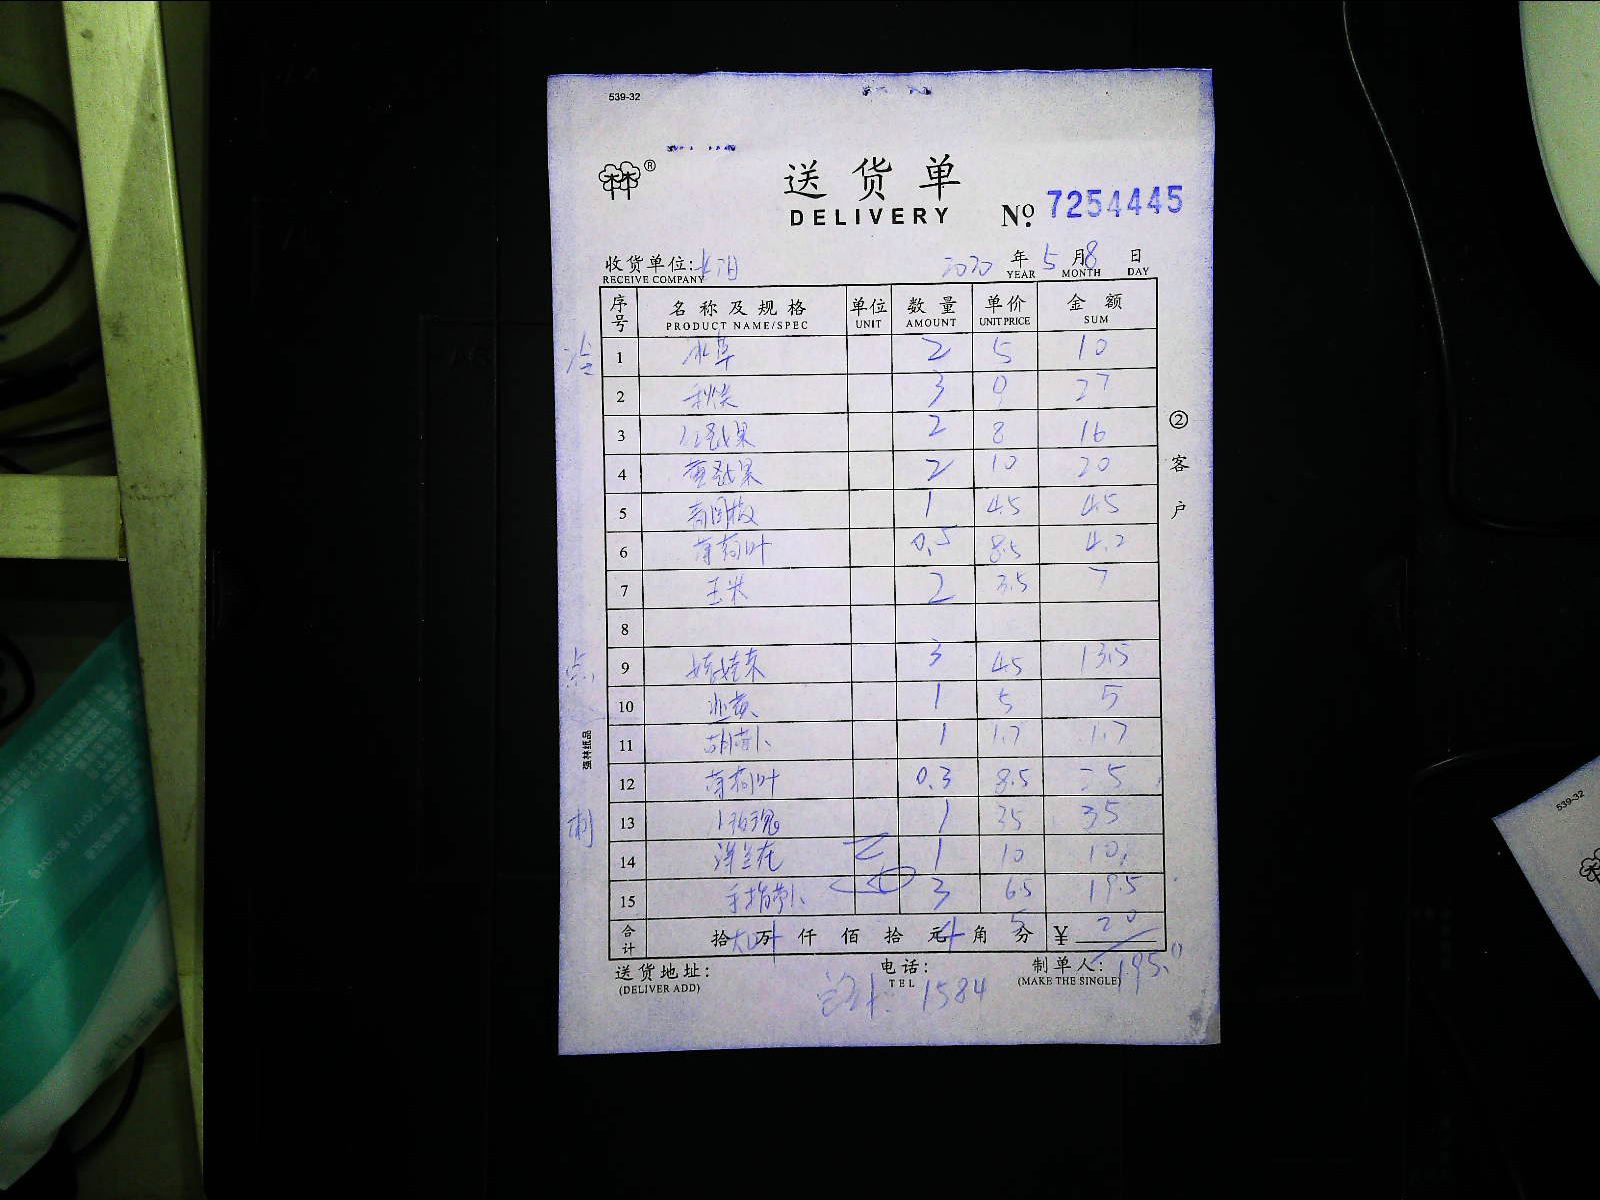 539-32
林®
送货单
DELIVERY
No. 7254445
收货单位: 2020年5月8日
RECEIVE COMPANY YEAR MONTH DAY
序号 名称及规格 单位 数量 单价 金额
PRODUCT NAME/SPEC UNIT AMOUNT UNIT PRICE SUM
冷
1 冰草 2 5 10
2 秋葵 3 9 27
3 红圣女果 2 8 16
4 黄圣女果 2 10 20
5 1 4.5 4.5
6 薄荷叶 0.5 8.5 4.2
7 玉米 2 3.5 7
8
点
9 娃娃菜 3 4.5 13.5
10 韭黄 1 5 5
11 胡萝卜 1 1.7 1.7
12 薄荷叶 0.3 8.5 2.5
13 1 35 35
14 洋兰花 1 10 10
15 手指萝卜 3 6.5 19.5
合计 拾 万 仟 佰 拾 元 角 分 ¥
4 5 20
195.0
送货地址: 电话: 制单人:
(DELIVER ADD) TEL (MAKE THE SINGLE)
总计: 1584
②客户
强林纸品
539-32